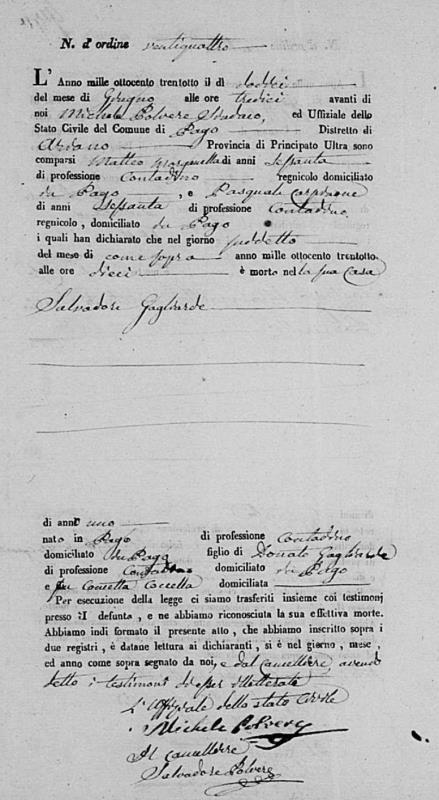 N. d'ordine ventiquattro
L' Anno mille ottocento trentotto il dì dodici
del mese di Giugno alle ore tredici avanti di
noi Michele Polvere Sindaco, ed Uffiziale dello
Stato Civile del Comune di Pago Distretto di
Ariano Provincia di Principato Ultra sono
comparsi Matteo di anni sessanta
di professione Contadino regnicolo domiciliato
in Pago, e Pasquale
di anni sessanta di professione Contadino
regnicolo, domiciliato in Pago
i quali han dichiarato che nel giorno suddetto
del mese di come sopra anno mille ottocento trentotto
alle ore dieci è morto nella sua Casa
Salvadore Gagliarde
di anni uno
nato in Pago di professione Contadino
domiciliato in Pago figlio di Donato Gagliarde
di professione Contadino domiciliato in Pago
e domiciliata
Per esecuzione della legge ci siamo trasferiti insieme coi testimonj
presso il defunta, e ne abbiamo riconosciuta la sua effettiva morte.
Abbiamo indi formato il presente atto, che abbiamo inscritto sopra i
due registri, è datane lettura ai dichiaranti, si è nel giorno, mese,
ed anno come sopra segnato da noi, e dal Cancelliere avendo
detto i testimoni di esser illetterate
L'Offiziale dello stato Civile
Michele Polvere
Il Cancelliere
Salvadore Polvere